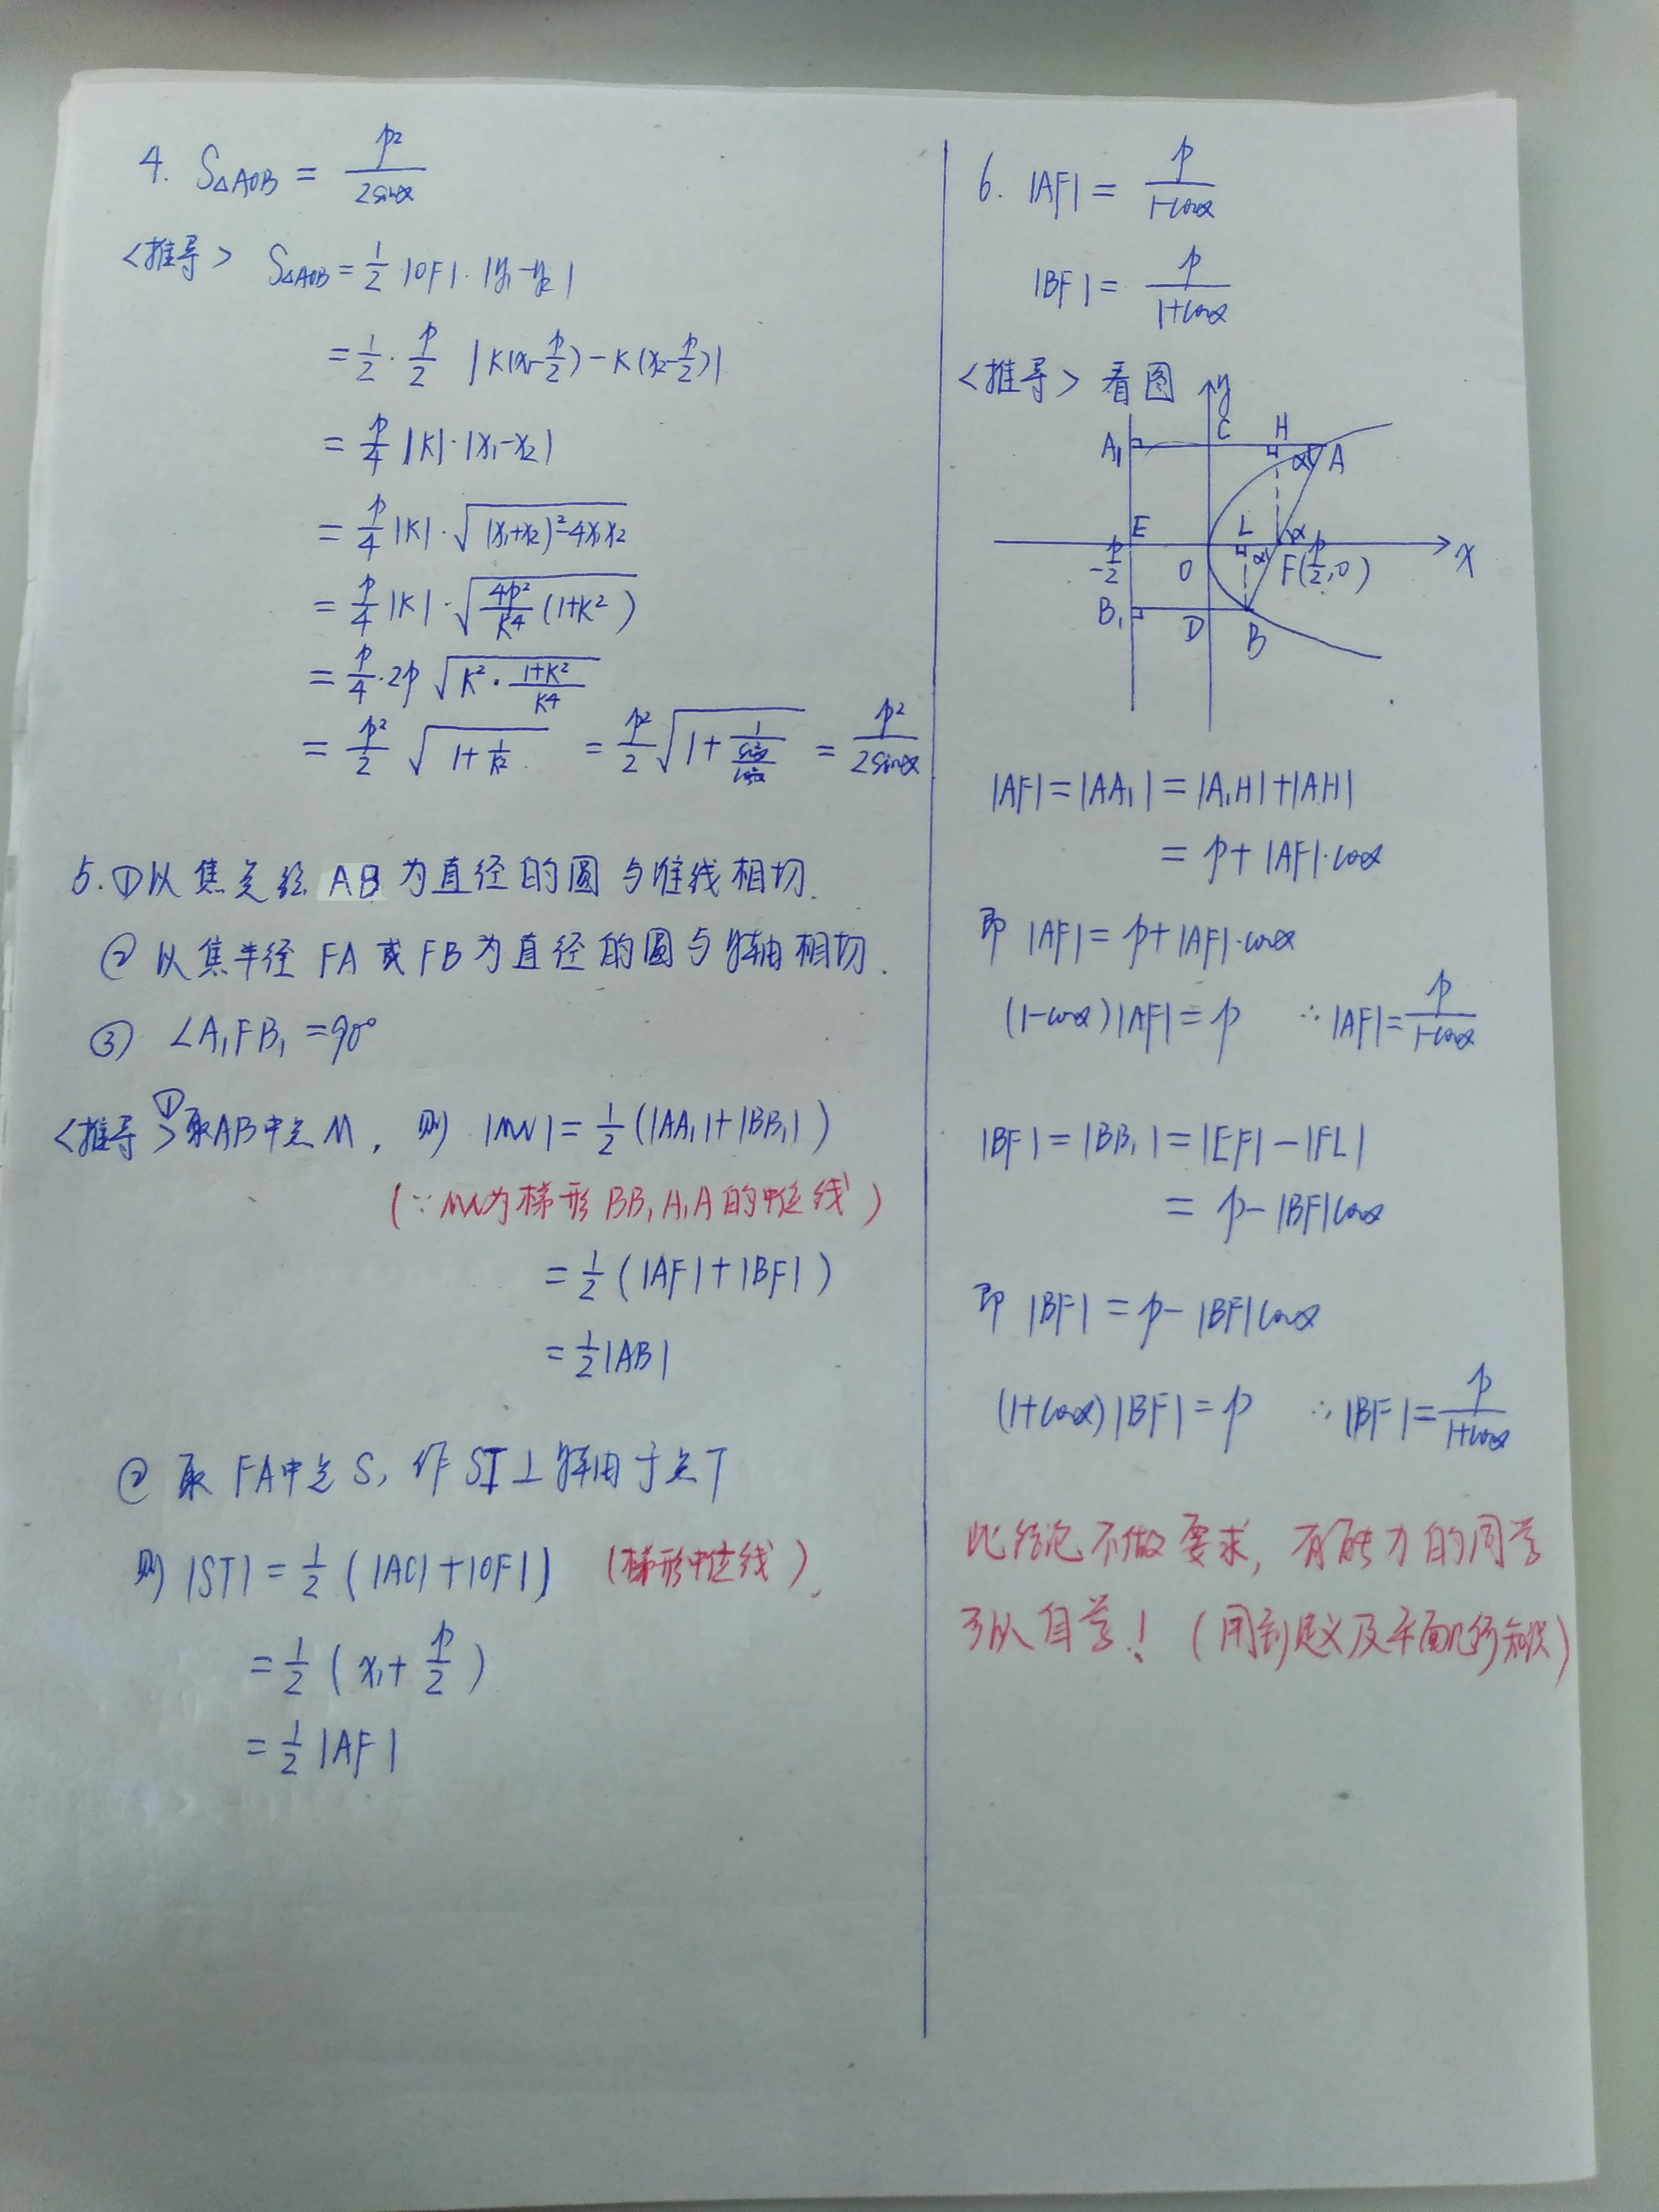 4. S△AOB = p²/2sinα
<推导> S△AOB = 1/2 |OF|·|y₁-y₂|
= 1/2 · p/2 |K(x₁-p/2)-K(x₂-p/2)|
= p/4 |K|·|x₁-x₂|
= p/4 |K|·√((x₁+x₂)²-4x₁x₂)
= p/4 |K|·√(4p²/K⁴ (1+K²))
= p/4 · 2p √(K² · (1+K²)/K⁴)
= p²/2 √(1+1/K²) = p²/2 √(1+1/(sin²α/cos²α)) = p²/2sinα
5. ①以焦点弦 AB 为直径的圆与准线相切.
② 以焦半径 FA 或 FB 为直径的圆与y轴相切.
③ ∠A₁FB₁=90°
<推导①>取AB中点M, 则 |MN|=1/2(|AA₁|+|BB₁|)
(∵MN为梯形 BB₁A₁A的中位线)
=1/2(|AF|+|BF|)
=1/2|AB|
② 取 FA中点S, 作ST⊥y轴由于点T
则|ST|=1/2(|AC|+|OF|) (梯形中位线).
=1/2(x₁+p/2)
=1/2|AF|
6. |AF|= p/(1-cosα)
|BF|= p/(1+cosα)
<推导> 看图
y
A₁ C H α A
E L α x
-p/2 O α F(p/2,0)
B₁ D B
|AF|=|AA₁|=|A₁H|+|AH|
= p+|AF|·cosα
即 |AF|= p+|AF|·cosα
(1-cosα)|AF|=p ∴|AF|=p/(1-cosα)
|BF|=|BB₁|=|EF|-|FL|
= p-|BF|cosα
即 |BF|=p-|BF|cosα
(1+cosα)|BF|=p ∴|BF|=p/(1+cosα)
此结论不做要求, 有能力的同学
可以自学! (用到定义及平面几何知识)